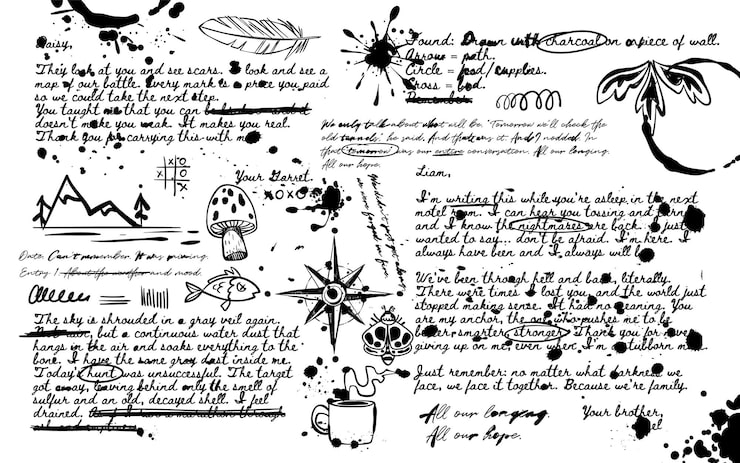 Daisy,
They look at you and see scars. I look and see a
map of our battle. Every mark is a price you paid
so we could take the next step.
You taught me that you can be
doesn't make you weak. It makes you real.
Thank you for carrying this with me
Your Garret.
XOXO
X O
X O
X O
Date: Can't remember. It was raining.
Entry 1 About the weather and mood.
The sky is shrouded in a gray veil again.
Not rain, but a continuous water dust that
hangs in the air and soaks everything to the
bone. I have the same gray dust inside me.
Today's hunt was unsuccessful. The target
got away, leaving behind only the smell of
sulfur and an old, decayed shell. I feel
drained. As if I ran a marathon through
Found: Drawn with charcoal on a piece of wall.
Arrow = path.
Circle = food/supplies.
Cross = bad.
Remember
We only talk about what will be. 'Tomorrow we'll check the
old tunnels,' he said. And that was it. And I nodded. In
that 'tomorrow' was our entire conversation. All our longing.
All our hope.
Liam,
I'm writing this while you're asleep in the next
motel room. I can hear you tossing and turning
and I know the nightmares are back. I just
wanted to say... don't be afraid. I'm here. I
always have been and I always will be
We've been through hell and back, literally.
There were times I lost you, and the world just
stopped making sense. It had no meaning. You
are my anchor, the one who pushes me to be
better, smarter, stronger. Thank you for never
giving up on me, even when I'm a stubborn
Just remember: no matter what darkness we
face, we face it together. Because we're family.
All our longing.
All our hope.
Your brother,